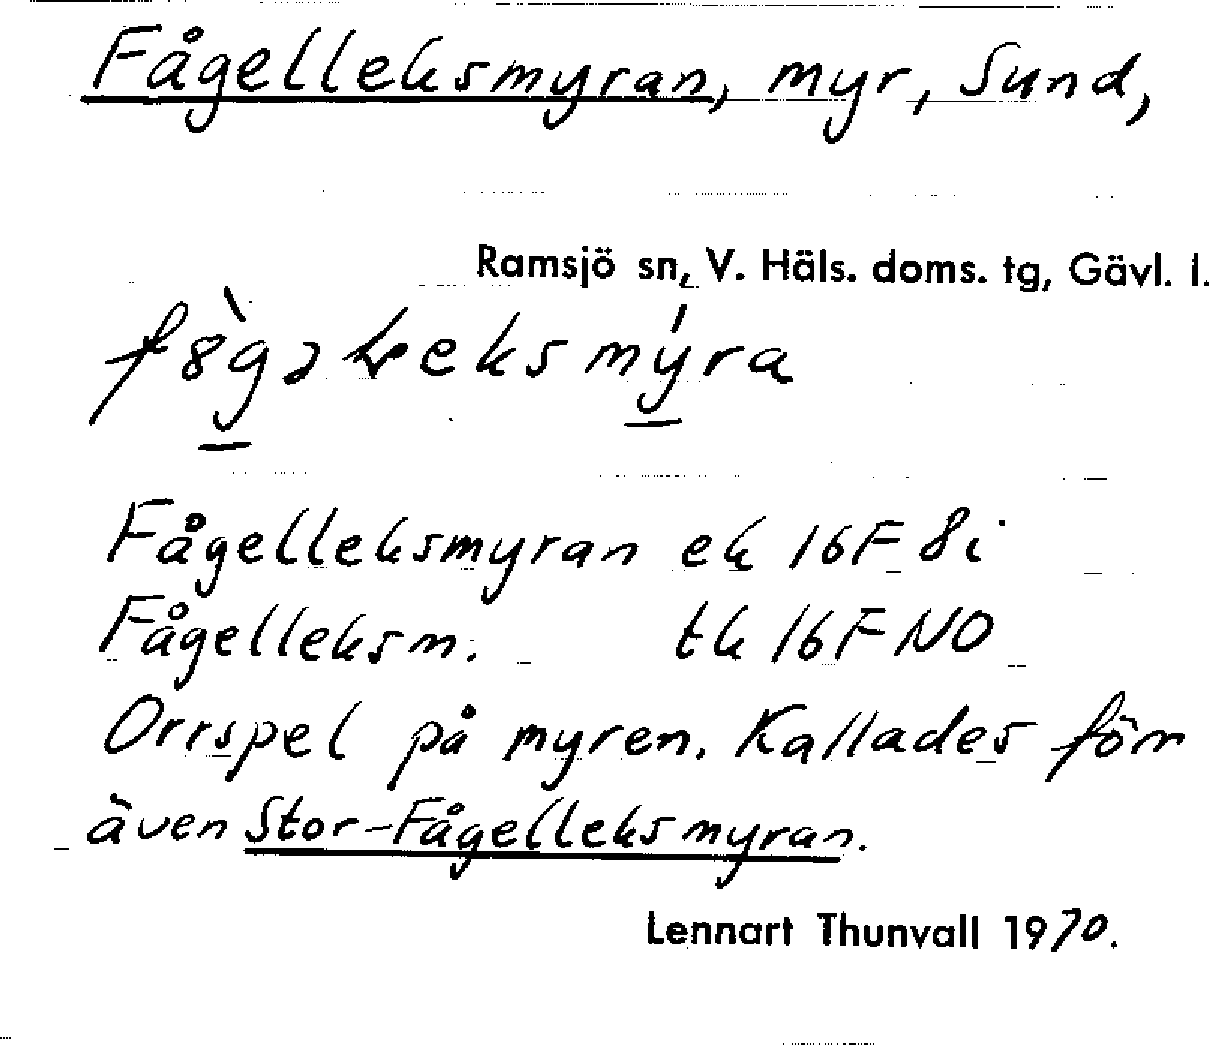 Fågelleksmyran, myr, Sund,
Ramsjö sn, V. Häls. doms. tg, Gävl. l.
Fågelleksmyran ek 16F 8i
Fågelleksm. tk 16F NO
Orrspel på myren. Kallades förr
även Stor-Fågelleksmyran.
Lennart Thunvall 1970.